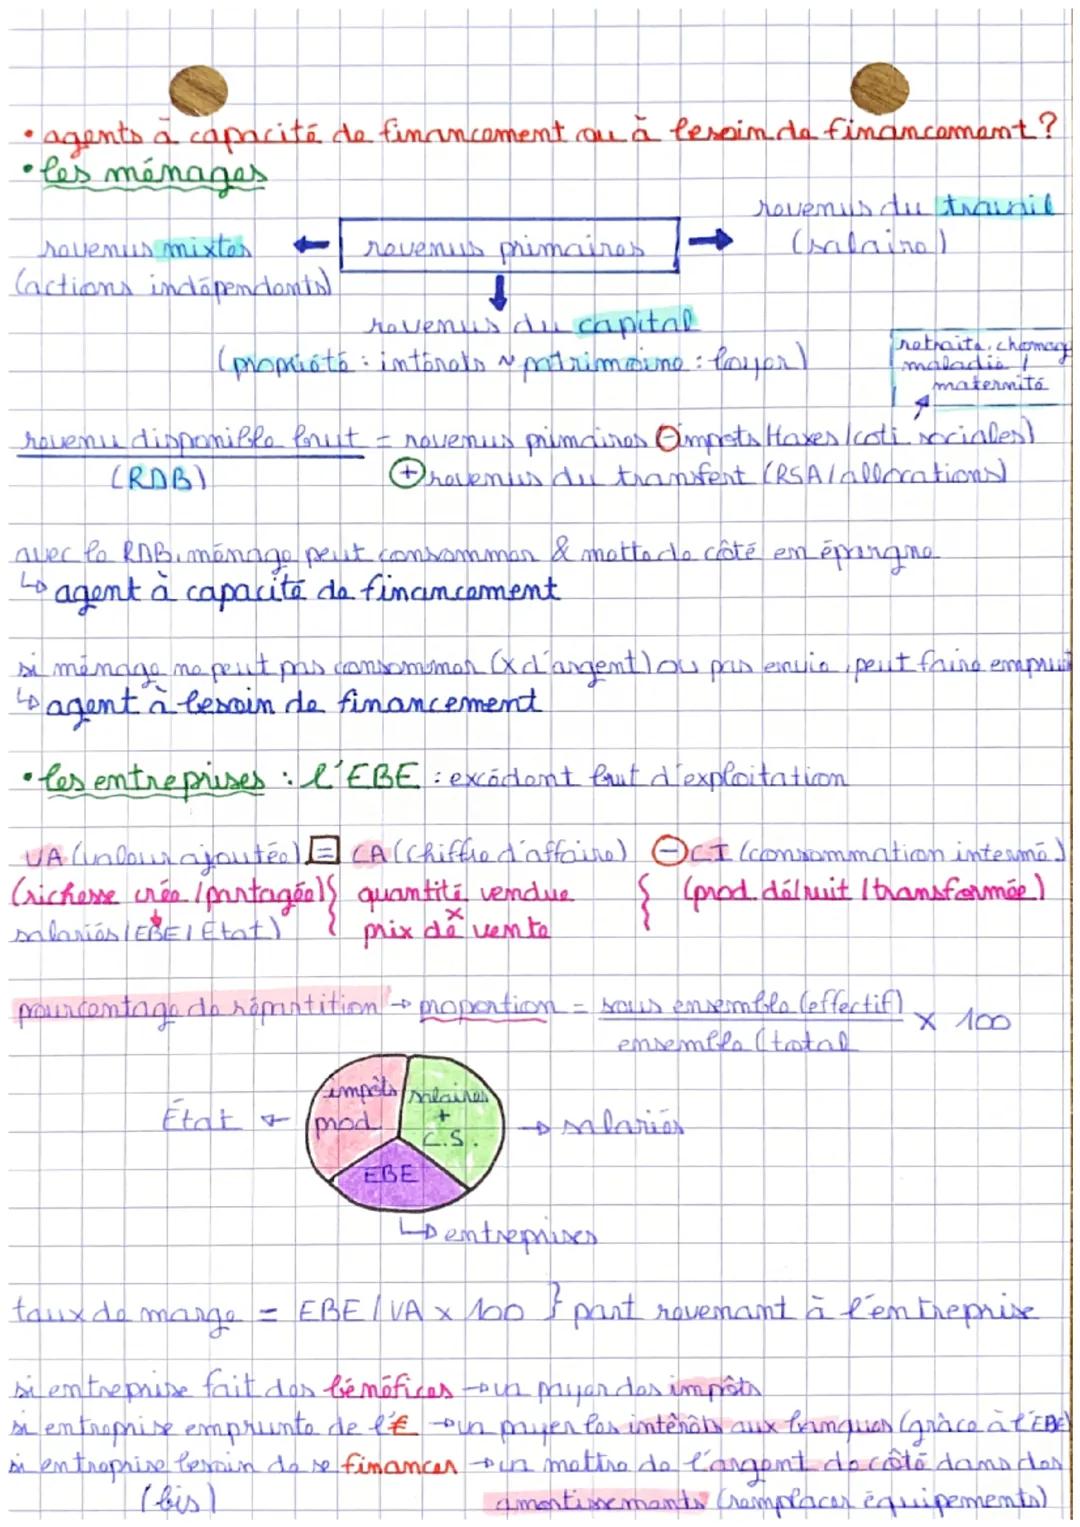 • agents à capacité de financement ou à besoin de financement ?
• les ménages
revenus du travail
(salaire)
revenus mixtes ← revenus primaires →
(actions indépendants)
revenus du capital
(propriété : intérêts ~ patrimoine : loyer)
retraite, chomag
maladie /
maternité
revenu disponible brut = revenus primaires ⊖ impots/taxes/coti sociales)
(RDB) ⊕ revenus du transfert (RSA/allocations)
avec le RDB, ménage peut consommer & mettre de côté en épargne
↳ agent à capacité de financement
si ménage ne peut pas consommer (x d'argent) ou pas envie, peut faire emprunt
↳ agent à besoin de financement
• les entreprises : l'EBE : excédent brut d'exploitation
VA (valeur ajoutée) = CA (chiffre d'affaire) ⊖ CI (consommation interme.)
(richesse crée / partagée) } quantité vendue } (prod. détruit / transformée)
salariés / EBE / Etat) x
prix de vente
pourcentage de répartition → proportion = sous ensemble (effectif) x 100
ensemble (total
impôts prod.
salaires + C.S.
État ←
→ salariés
EBE
↳ entreprises
taux de marge = EBE / VA x 100 } part revenant à l'entreprise
si entreprise fait des bénéfices → va payer des impôts
si entreprise emprunte de l'€ → va payer les intérêts aux banques (grâce à l'EBE)
si entreprise besoin de se financer → va mettre de l'argent de côté dans des
(bis) amortissements (remplacer équipements)